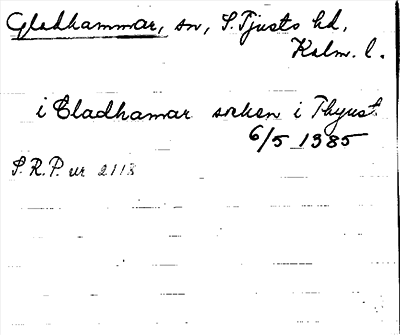 Gladhammar, sn, S. Tjusts hd,
Kalm. l.
i Gladhamar soken i Thyust
6/5 1385
S.R.P. nr 2118